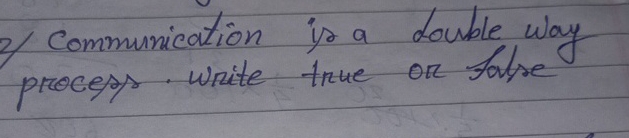 2/ Communication is a double way
process. Write true or false